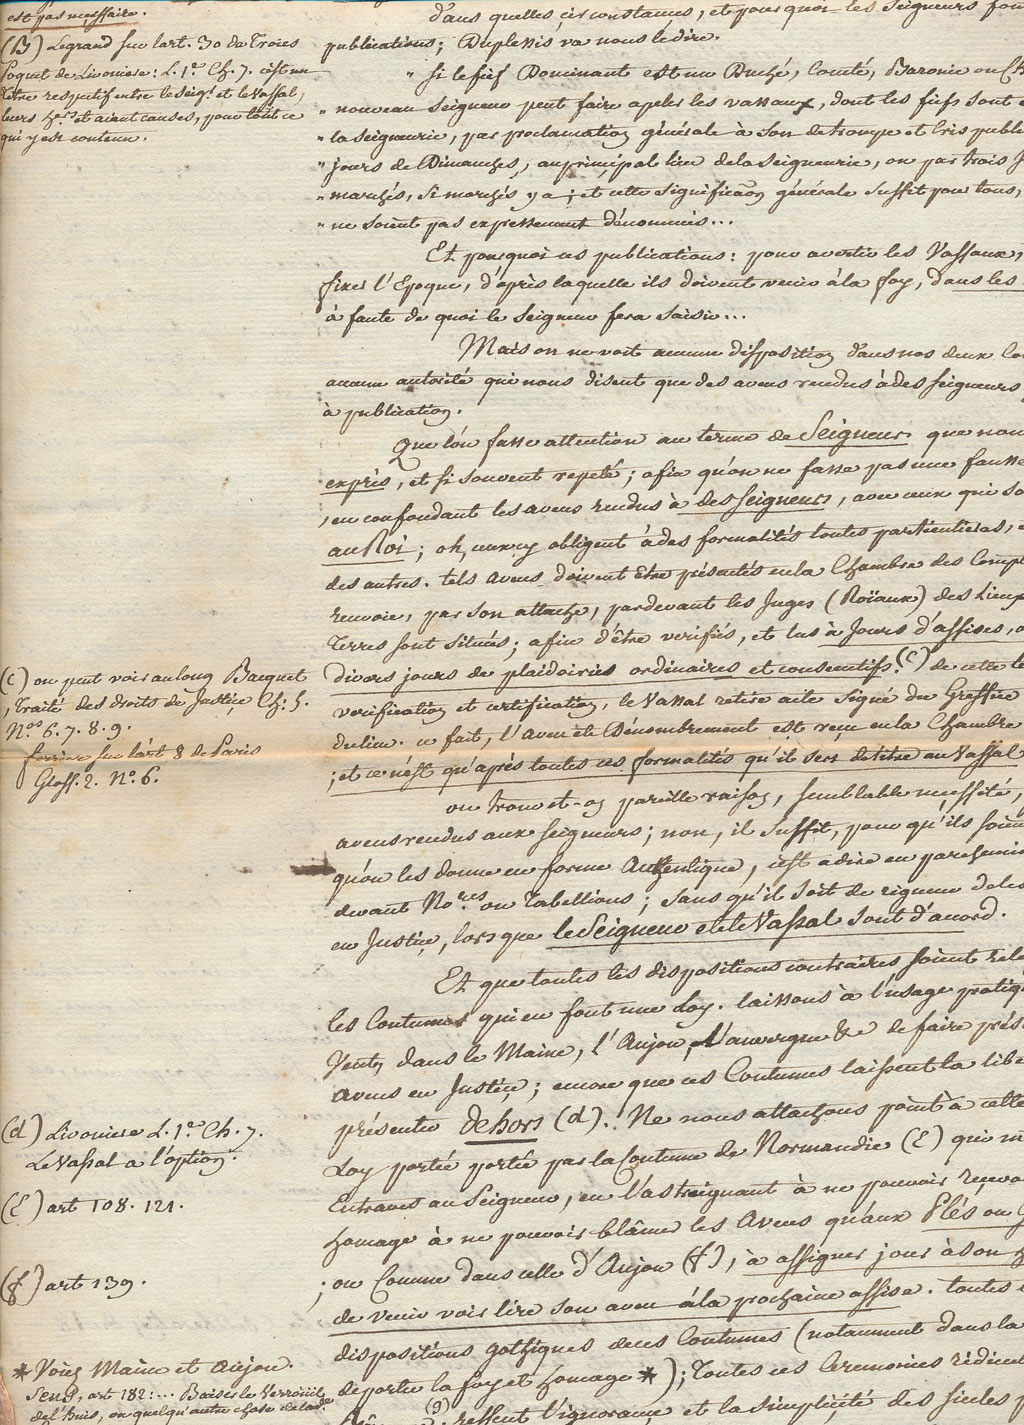 est pas necessaire.
(B) Legrand sur l'art. 30 de Troies
Poquet de Livoniere: L. 1.er Ch. 7. c'est un
titre respectif entre le Seig.r et le Vassal,
leurs h.ers et aient causes, pour tout ce
qui y est contenu.
(C) on peut voir au long Bacquet
, Traité des droits de Justice Ch. 5.
N.os 6. 7. 8. 9.
ferriere sur l'art 8 de Paris
Gloss. 2. N.o 6.
(d) Livoniere L. 1.er Ch. 7.
Le Vassal a l'option.
(E) art 108. 121.
(f) art 139.
* Voiez Maine et Anjou.
art 182: ... Baiser le Verrouil
de l'huis, ou quelqu'autre chose
dans quelles circonstances, et pourquoi les Seigneurs
publications; Duplessis va nous le dire.
" si le fief Dominant est un Duché, Comté, Baronie ou
" nouveau Seigneur peut faire apeler les vassaux, dont les fiefs sont
" la Seigneurie, par proclamation générale à Son de trompe et Cris
" jours de Dimanches, au principal lieu de la Seigneurie, ou par trois
" marchés, Si marchés y a; et cette signification générale Suffit pour tous,
" ne soient pas expressement dénommés...
Et pourquoi ces publications: pour avertir les Vassaux,
fixer l'Epoque, d'après laquelle ils doivent venir à la foy, dans les
à faute de quoi le Seigneur fera Saisir...
Mais on ne voit aucune disposition dans nos deux
aucune autorité qui nous disent que des aveus rendus à des Seigneurs
à publication.
Que l'on fasse attention au terme de Seigneurs que
exprès, et si souvent repeté; afin qu'on ne fasse pas une
, en confondant les aveus rendus à des Seigneurs, avec ceux qui
au Roi; oh, ceux cy obligent à des formalités toutes particulieres,
des autres. tels aveus doivent Etre présentés en la Chambre des
renvoie, par Son attache, pardevant les Juges (Roïaux) des Lieux
Terres sont Situées; afin d'être verifiés, et lus à Jours d'assises,
divers jours de plaidoiries ordinaires et consecutifs. (C) de cette
verification et certification, le Vassal retire acte Signé du Greffier
du lieu. ce fait, l'Aveu et le Dénombrement est recu en la Chambre
; et ce n'est qu'après toutes ces formalités qu'il sert de titre au Vassal
on trouvet-on pareille raison, semblable necessité,
aveus rendus aux Seigneurs; non, il Suffit, pour qu'ils
qu'on les donne en forme Authentique, c'est à dire en parchemin
devant No.res ou Tabellions; sans qu'il Soit de rigueur
en Justice, lorsque le Seigneur et le Vassal Sont d'accord.
Et que toutes les dispositions contraires soient
les Coutumes qui en font une Loy. laissons à l'usage
, dans le Maine, l'Anjou, l'auvergne &c de faire
Aveus en Justice; encore que ces Coutumes laissent la
présenter dehors (d).. Ne nous attachons point à cette
Loy portée portée par la Coutume de Normandie (E) qui
Entraves au Seigneur, en l'astreignant à ne pouvoir
homage à ne pouvoir blâmer les Aveus qu'aux Plés ou
; ou Comme dans celle d'Anjou (f), à assigner jour à son
de venir voir lire Son aveu à la prochaine assise. toutes
dispositions gothiques de ces Coutumes (notamment dans la
de porter la foy et homage *); Toutes ces Ceremonies
(g) l'ignorance et la simplicité des siecles